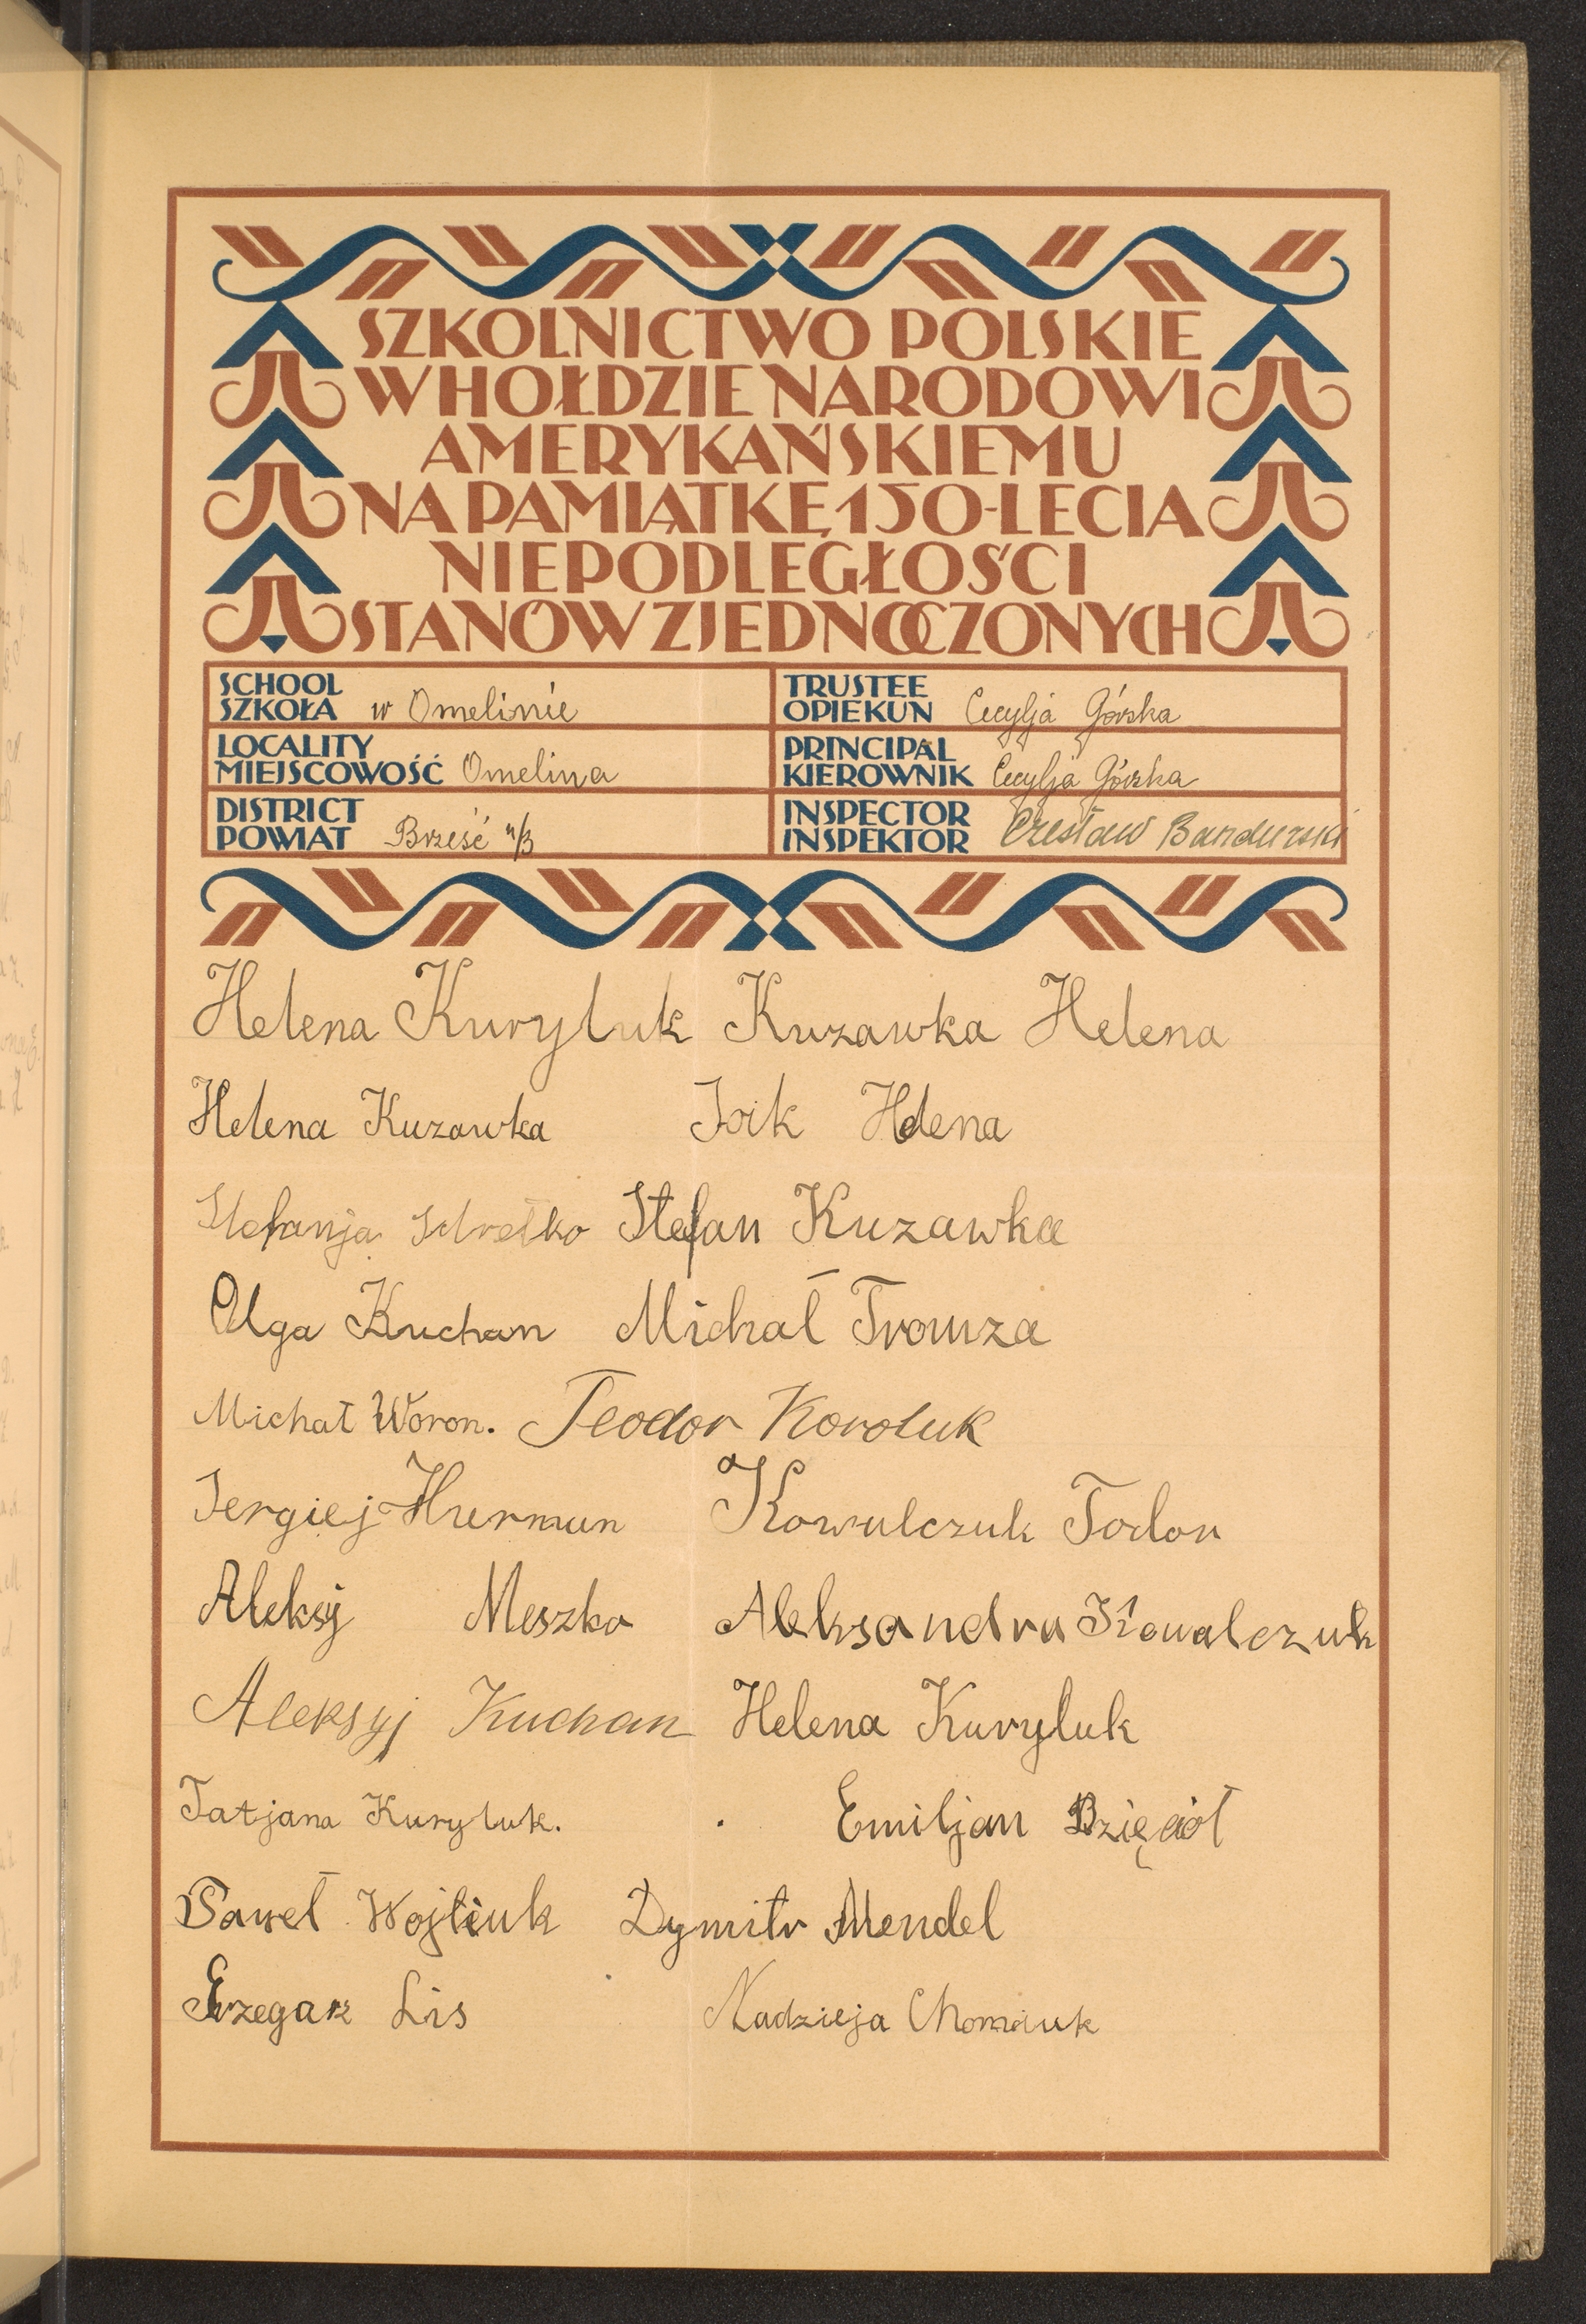 SZKOLNICTWO POLSKIE
W HOŁDZIE NARODOWI
AMERYKAŃSKIEMU
NA PAMIĄTKĘ 150-LECIA
NIEPODLEGŁOŚCI
STANÓW ZJEDNOCZONYCH
SCHOOL
SZKOŁA w Omelinie
TRUSTEE
OPIEKUN Cecylja Górska
LOCALITY
MIEJSCOWOŚĆ Omelina
PRINCIPAL
KIEROWNIK Cecylja Górska
DISTRICT
POWIAT Brześć n/B
INSPECTOR
INSPEKTOR Czesław Bandurski
Helena Kuryluk Kuzawka Helena
Helena Kuzawka Helena
Stefanja Stefan Kuzawka
Olga Kuchan Michał
Michał Woron. Teodor Koroluk
Sergiej Hurmun Kowalczuk Todor
Aleksy Meszko Aleksandra Kowalczuk
Aleksyj Kuchan Helena Kuryluk
Tatjana Kuryluk. Emiljan Dzięcioł
Paweł Wojtiuk Dymitr Mendel
Grzegarz Lis Nadzieja Chomiuk